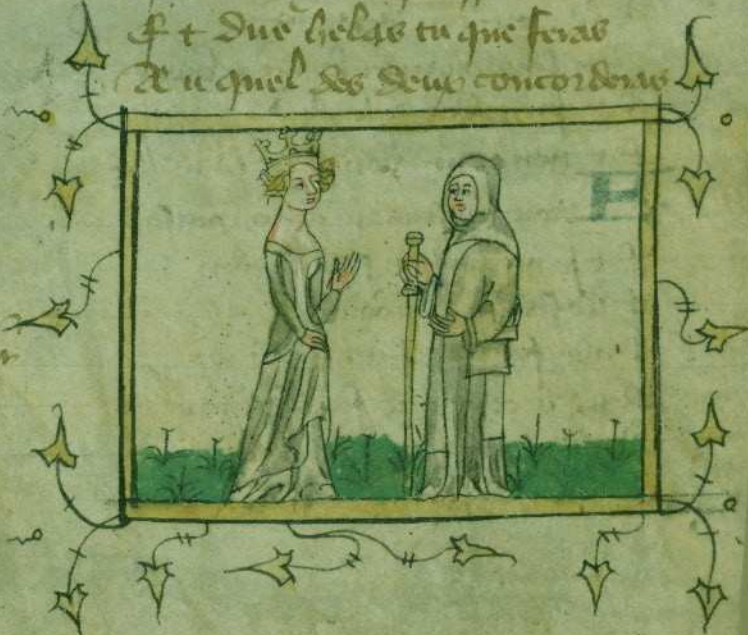 Et dire helas tu que feras
Au quel des deux concorderas